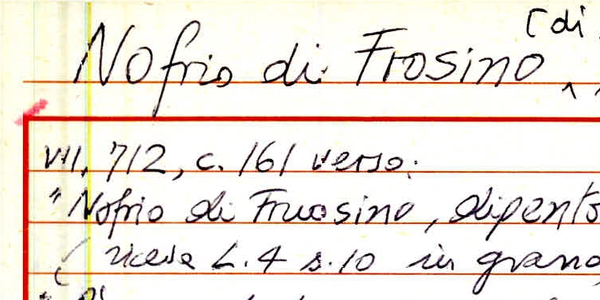 [di
Nofrio di Frosino
VII, 712, c. 161 verso:
"Nofrio di Fruosino, dipento
riceve L. 4 s. 10 in grano